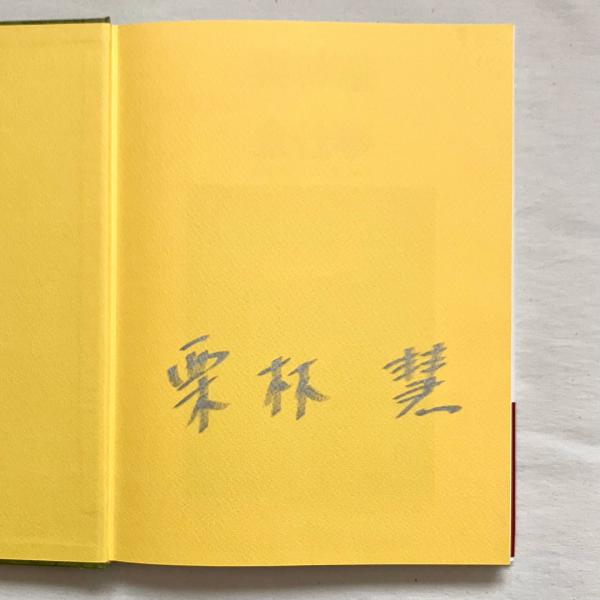 栗林 慧